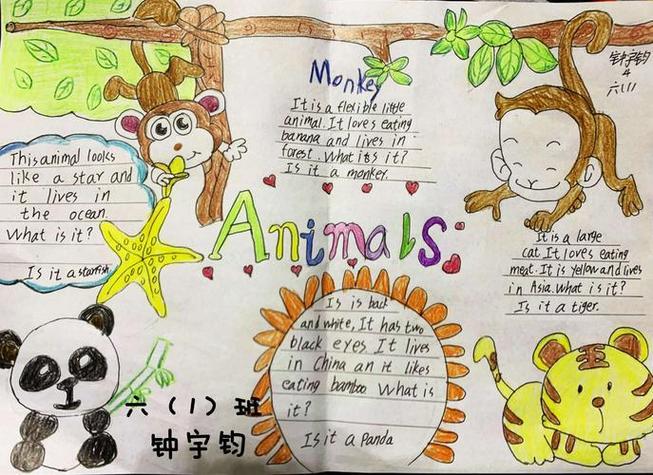 Monkey
It is a flexible little
animal. It loves eating
banana and lives in
forest. What it's it?
Is it a monkey.
钟宇钧
4
六(1)
This animal looks
like a star and
it lives in
the ocean.
What is it?
Is it a starfish
Animals
It is a large
cat. It loves eating
meat. It is yellow and lives
in Asia. What is it?
Is it a tiger.
Is is back
and white, It has two
black eyes It lives
in China an it likes
eating bamboo What is
it?
Is it a Panda
六（1）班
钟宇钧